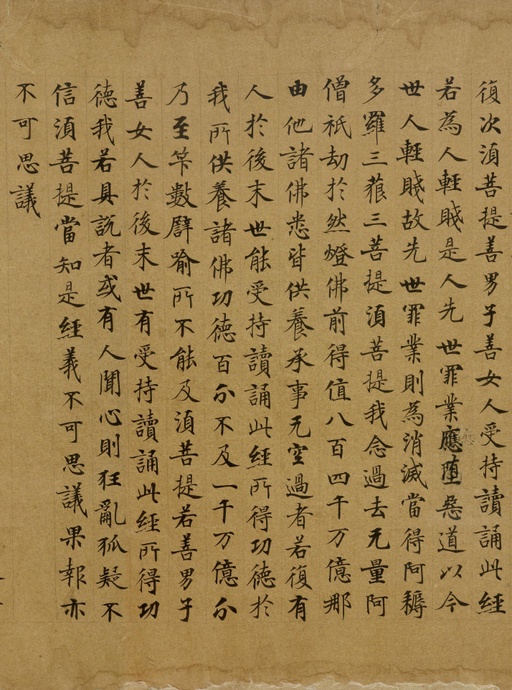 復次湏菩提善男子善女人受持讀誦此經
若為人輕賤是人先世罪業應墮惡道以今
世人輕賤故先世罪業則為消滅當得阿耨
多羅三藐三菩提湏菩提我念過去无量阿
僧祇劫於然燈佛前得值八百四千万億那
由他諸佛悉皆供養承事无空過者若復有
人於後末世能受持讀誦此經所得功德於
我所供養諸佛功德百分不及一千万億分
乃至筭數譬喻所不能及湏菩提若善男子
善女人於後末世有受持讀誦此經所得功
德我若具說者或有人聞心則狂亂狐疑不
信湏菩提當知是經義不可思議果報亦
不可思議